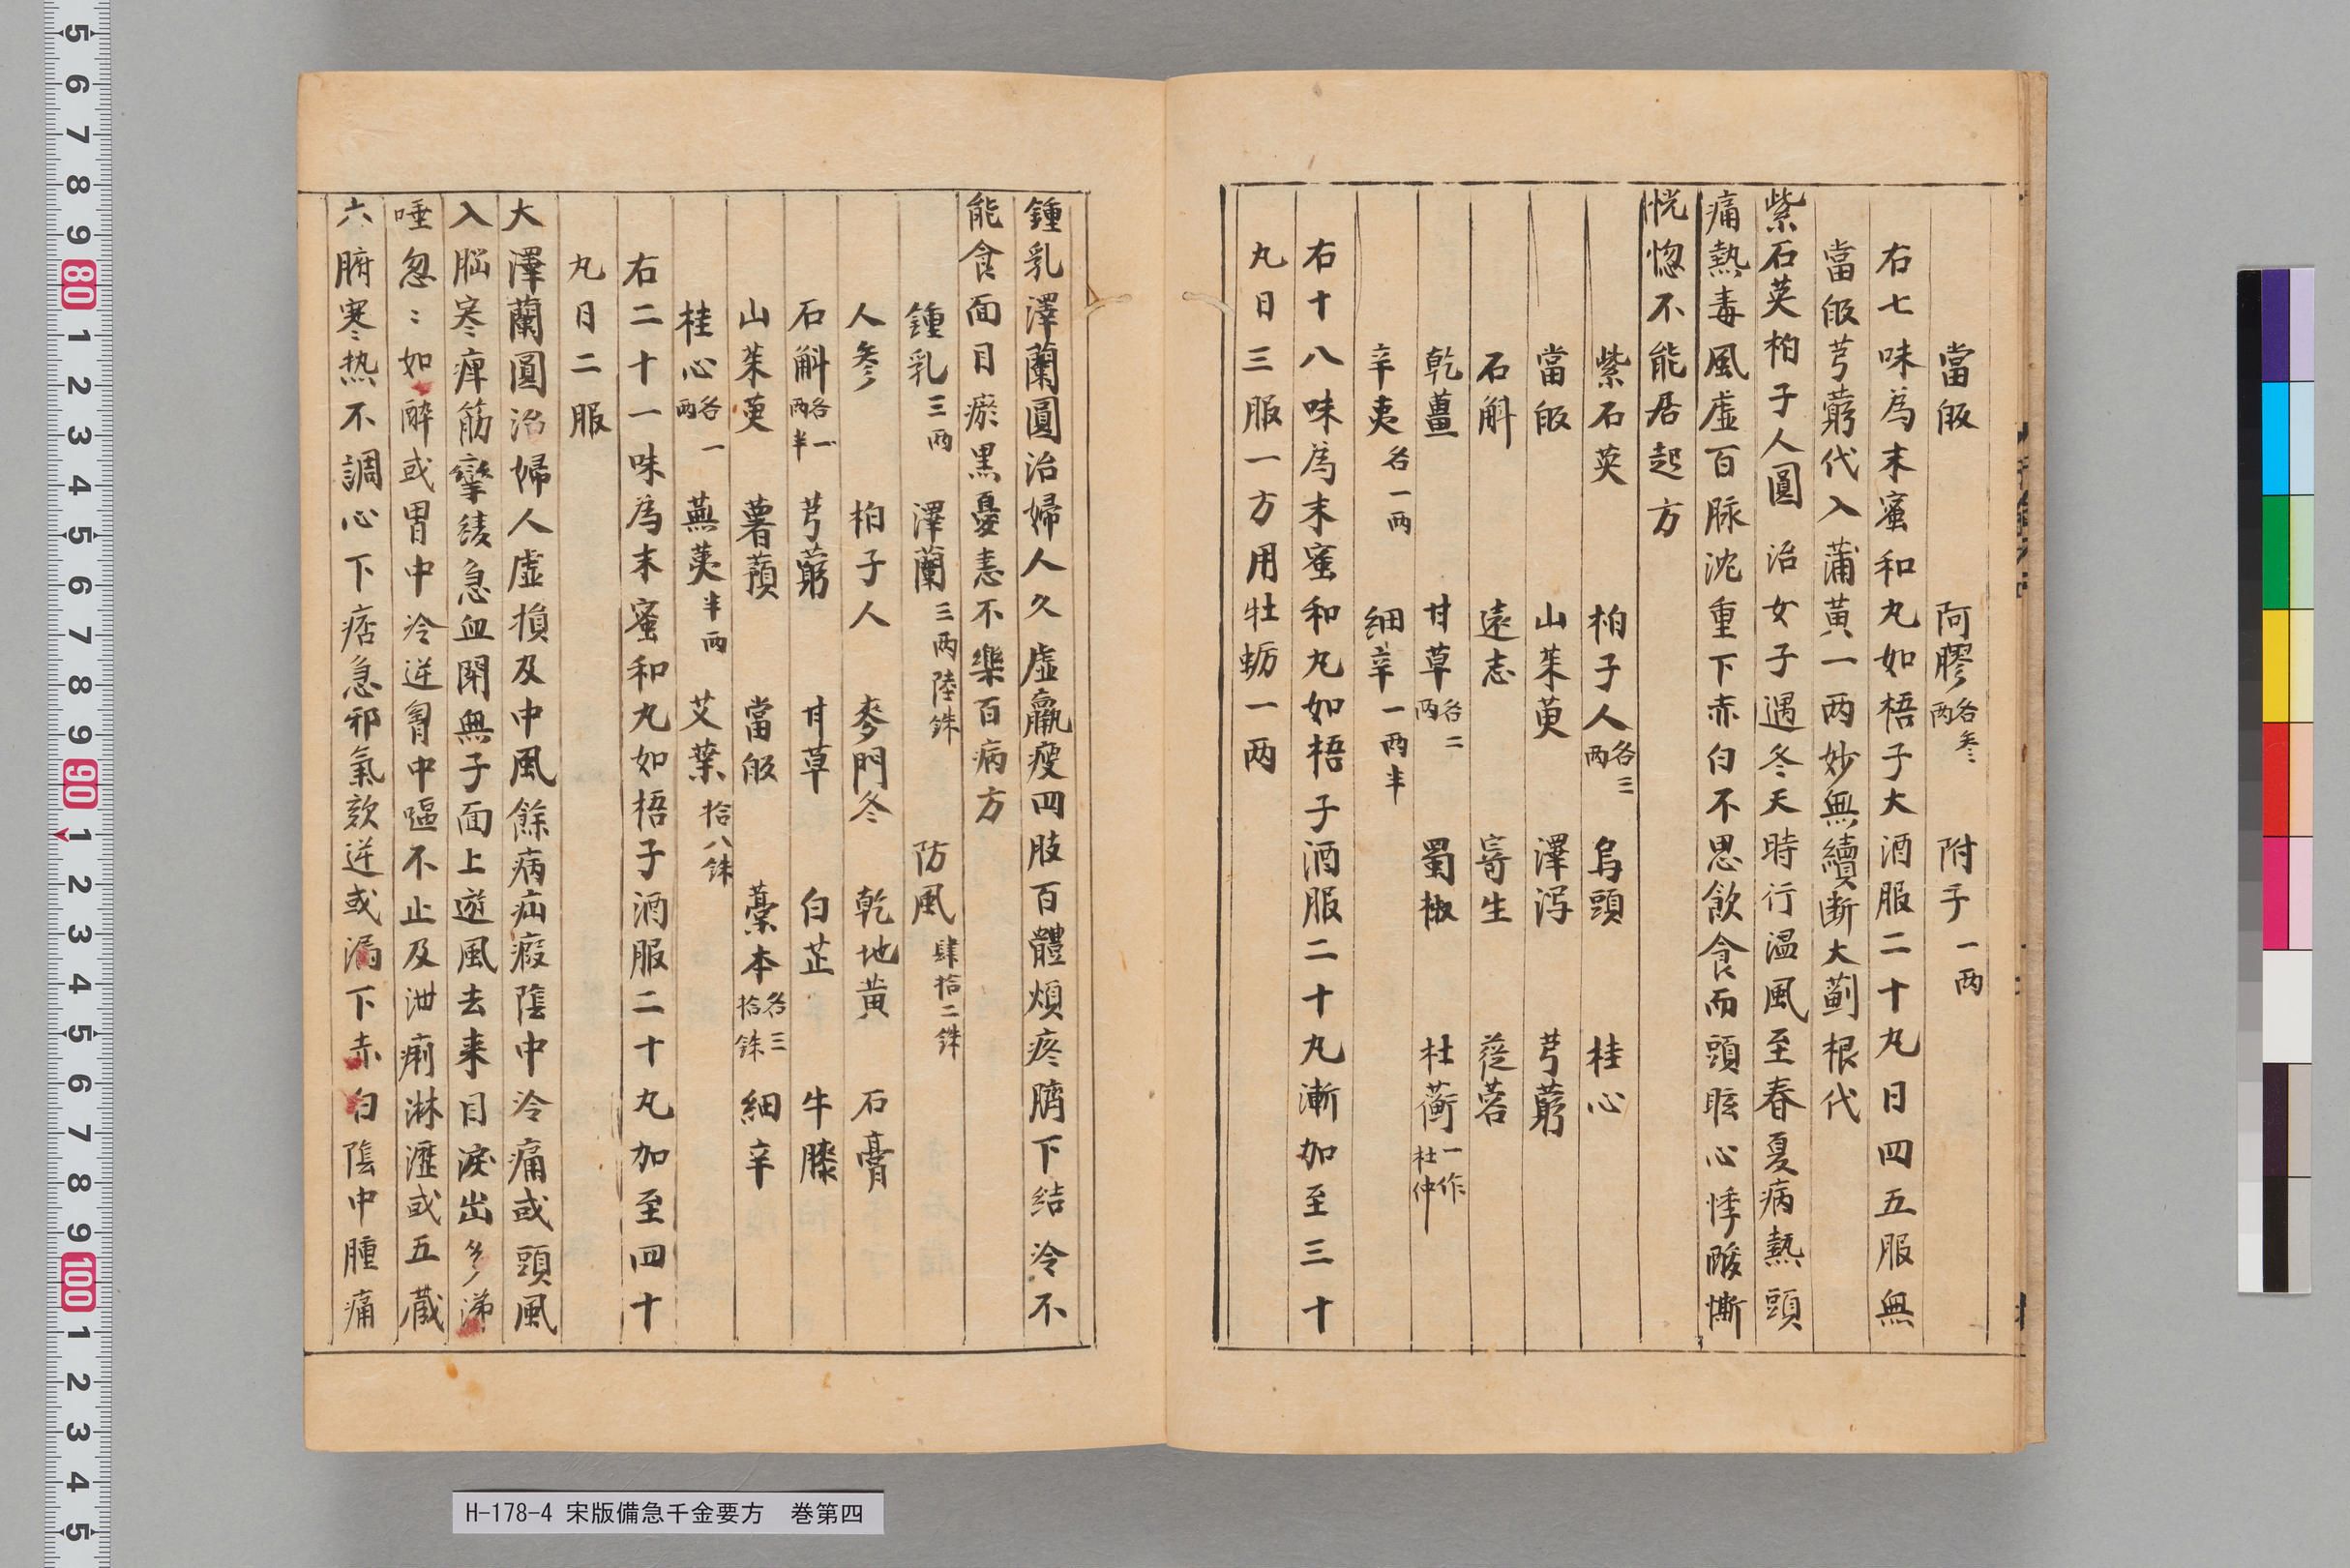 當皈 阿膠各叁两 附子一两
右七味為末蜜和丸如梧子大酒服二十丸日四五服無
當皈芎藭代入蒲黃一两妙無續断大薊根代
紫石英柏子人圓 治女子遇冬天時行溫風至春夏病熱頭
痛熱毒風虛百脉沈重下赤白不思飲食而頭眩心悸酸㒋
恍惚不能居起方
紫石英 柏子人各三两 烏頭 桂心
當皈 山茱萸 澤泻 芎藭
石斛 遠志 寄生 蓯蓉
乾薑 甘草各二两 蜀椒 杜蘅一作杜仲
辛夷各一两 細辛一两半
右十八味為末蜜和丸如梧子酒服二十丸漸加至三十
丸日三服一方用牡蛎一两
鍾乳澤蘭圓治婦人久虛羸瘦四肢百體煩疼臍下结冷不
能食面目瘀黑憂恚不樂百病方
鍾乳三两 澤蘭三两陸銖 防風肆拾二銖
人參 柏子人 麥門冬 乾地黃 石膏
石斛各一两半 芎藭 甘草 白芷 牛膝
山茱萸 薯蕷 當皈 藁本各三拾銖 細辛
桂心各一两 蕪荑半两 艾葉拾八銖
右二十一味為末蜜和丸如梧子酒服二十丸加至四十
丸日二服
大澤蘭圓治婦人虛損及中風餘病疝瘕陰中冷痛或頭風
入腦寒痺筋攣緩急血閉無子面上遊風去来目淚出多涕
唾忽〻如醉或胃中冷逆胷中嘔不止及泄痢淋瀝或五蔵
六腑寒热不調心下痞急邪氣欬逆或漏下赤白陰中腫痛
H-178-4 宋版備急千金要方 巻第四
5 6 7 8 9 80 1 2 3 4 5 6 7 8 9 90 1 2 3 4 5 6 7 8 9 100 1 2 3 4 5